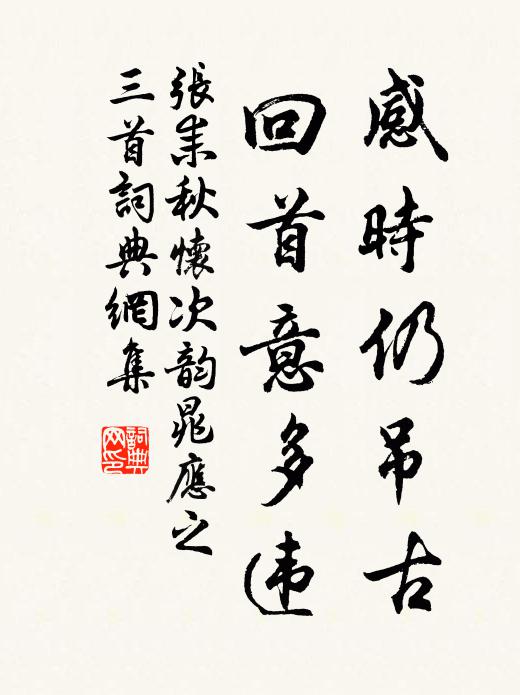 感時仍吊古
回首意多違
張耒秋懷次韵晁應之
三首詞典網集
詞典網印